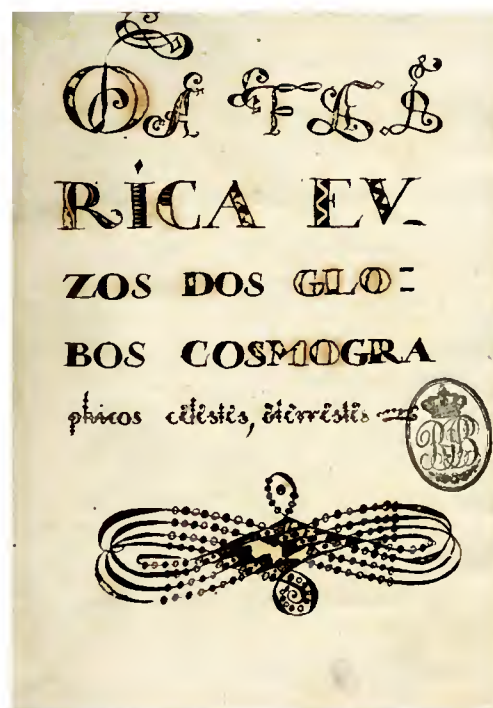 DA FA B
RICA EV-
ZOS DOS GLO=
BOS COSMOGRA
phicos celestes, eterrestes